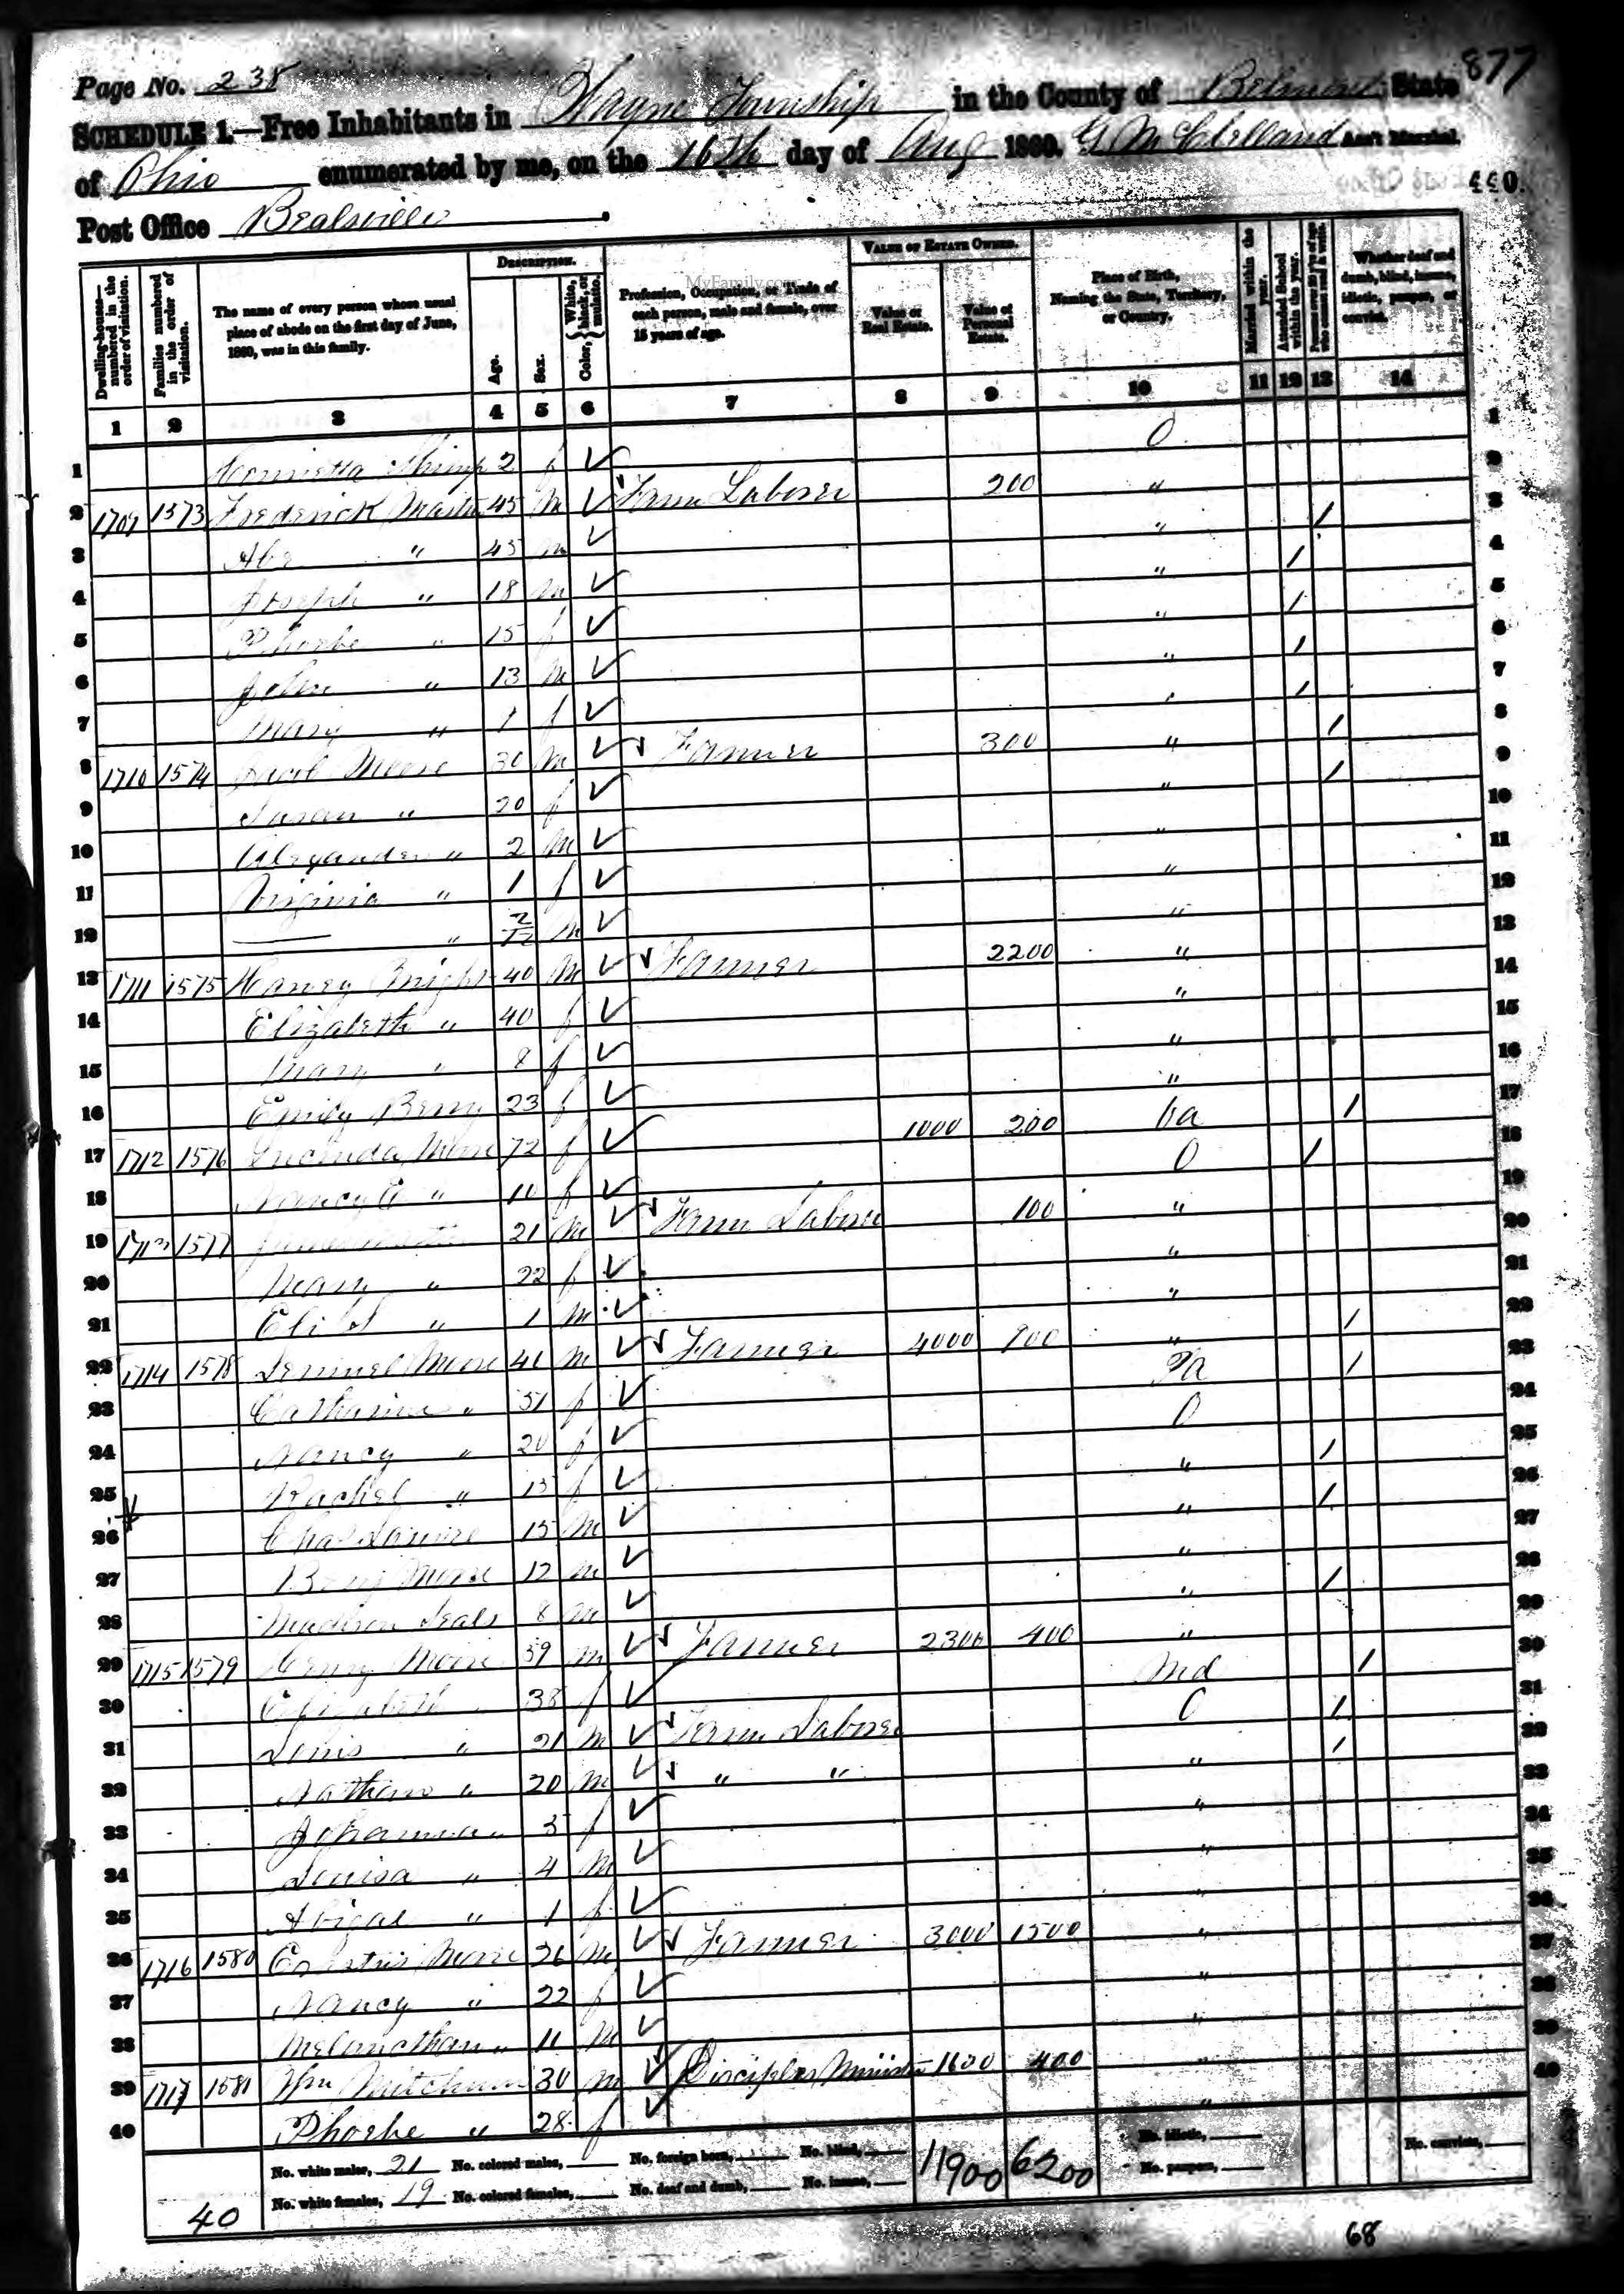 Page No. 238
877
SCHEDULE 1.—Free Inhabitants in Wayne Township in the County of Belmont State
of Ohio enumerated by me, on the 16th day of Aug 1860. G McClelland Ass't Marshal.
440.
Post Office Bealsville
MyFamily.com
Dwelling-house—numbered in the order of visitation.
Families numbered in the order of visitation.
The name of every person whose usual place of abode on the first day of June, 1860, was in this family.
DESCRIPTION.
Age.
Sex.
Color, { White, black, or mulatto.
Profession, Occupation, or Trade of each person, male and female, over 15 years of age.
VALUE OF ESTATE OWNED.
Value of Real Estate.
Value of Personal Estate.
Place of Birth, Naming the State, Territory, or Country.
Married within the year.
Attended School within the year.
Persons over 20 y'rs of age who cannot read & write.
Whether deaf and dumb, blind, insane, idiotic, pauper, or convict.
1 2 3 4 5 6 7 8 9 10 11 12 13 14
1 Henrietta 2 f ✓ O 1
2 1709 1573 Frederick 45 M ✓ Farm Laborer 200 " 2
3 " 45 m ✓ " / 3
4 Joseph " 18 m ✓ " / 4
5 Phoebe " 15 f ✓ " / 5
6 John " 13 M ✓ " / 6
7 Mary " f ✓ / 7
8 1710 1574 Jacob Moore 30 M ✓ Farmer 300 " / 8
9 Susan " 20 f ✓ " / 9
10 Alexander " 2 M ✓ " 10
11 Virginia " 1 f ✓ " 11
12 — " 2/12 M ✓ " 12
13 1711 1575 Harvey 40 M ✓ Farmer 2200 " 13
14 Elizabeth " 40 f ✓ " 14
15 Mary " 8 f ✓ " 15
16 Emily Berry 23 f ✓ " 16
17 1712 1576 Lucinda Moore 72 f ✓ 1000 200 Va / 17
18 Nancy E " 10 f ✓ O / 18
19 1713 1577 21 M ✓ Farm Laborer 100 " 19
20 Mary " 22 f ✓ " 20
21 Eli " 1 M ✓ " 21
22 1714 1578 Lemuel Moore 41 M ✓ Farmer 4000 900 " / 22
23 Catharine " 51 f ✓ Pa / 23
24 Nancy " 20 f ✓ O 24
25 Rachel " 15 f ✓ " / 25
26 Chas 15 M ✓ " / 26
27 Benj Moore 12 m ✓ " 27
28 Madison 8 m ✓ " / 28
29 1715 1579 Henry Moore 39 M ✓ Farmer 2300 400 " 29
30 Elizabeth " 38 f ✓ Md / 30
31 Louis " 21 M ✓ Farm Laborer O / 31
32 Nathan " 20 M ✓ " " " / 32
33 " f ✓ " 33
34 Louisa " 4 M ✓ " 34
35 Abigal " 1 f ✓ " 35
36 1716 1580 Erastus Moore 26 M ✓ Farmer 3000 1500 " 36
37 Nancy " 22 f ✓ " 37
38 Melancthan " 11 M ✓ " 38
39 1717 1581 Wm 30 M ✓ Disciples Minister 1600 400 " 39
40 Phoebe " 28 f ✓ " 40
No. white males, 21 No. colored males, No. foreign born, No. blind, 11900 6200 No. idiotic,
No. white females, 19 No. colored females, No. deaf and dumb, No. insane, No. paupers, No. convicts,
40
68